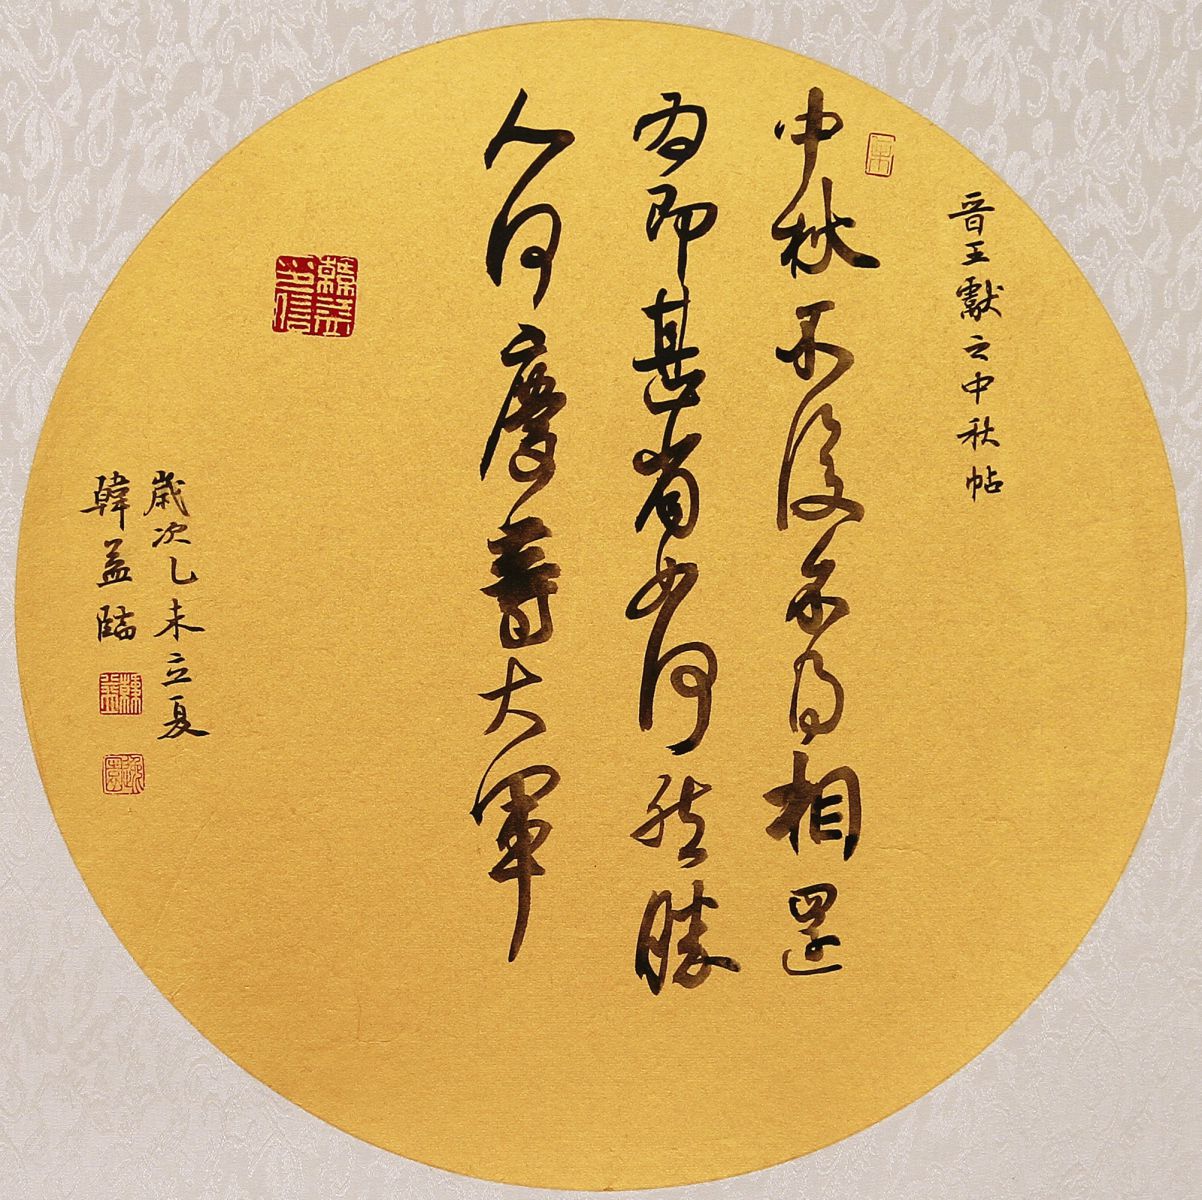 晉王獻之中秋帖
中秋不復不得相還
為即甚省如何然勝
人何慶等大軍
歲次乙未立夏
韓益臨
韓益